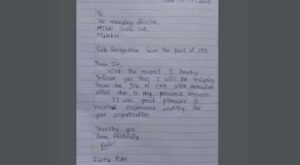 To,
The managing director
Mumbai
Sub: Resignation from the post of CFO
Dear Sir,
With due respect, I hereby
inform you that I will be resigning
from the job of CFO with immediate
effect due to my personal reasons
It was great pleasure &
exciting experience working for
your organisation
Thanking you
Yours faithfully